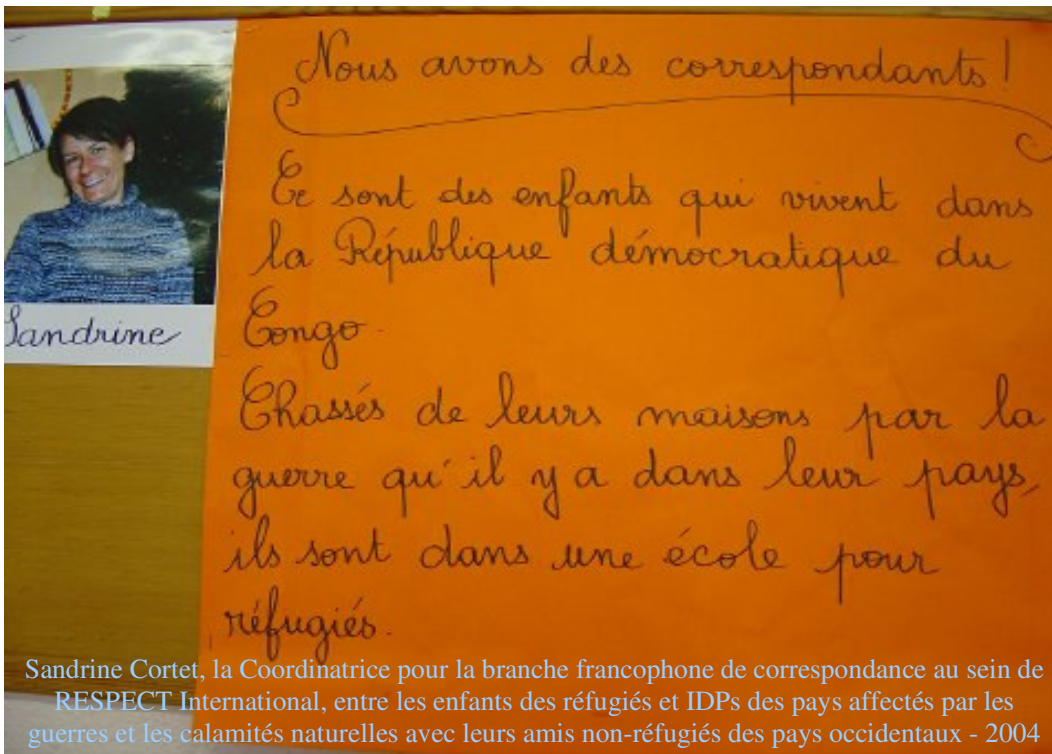 Nous avons des correspondants !
Ce sont des enfants qui vivent dans
la République démocratique du
Congo.
Chassés de leurs maisons par la
guerre qu'il y a dans leur pays,
ils sont dans une école pour
réfugiés.
Sandrine
Sandrine Cortet, la Coordinatrice pour la branche francophone de correspondance au sein de
RESPECT International, entre les enfants des réfugiés et IDPs des pays affectés par les
guerres et les calamités naturelles avec leurs amis non-réfugiés des pays occidentaux - 2004